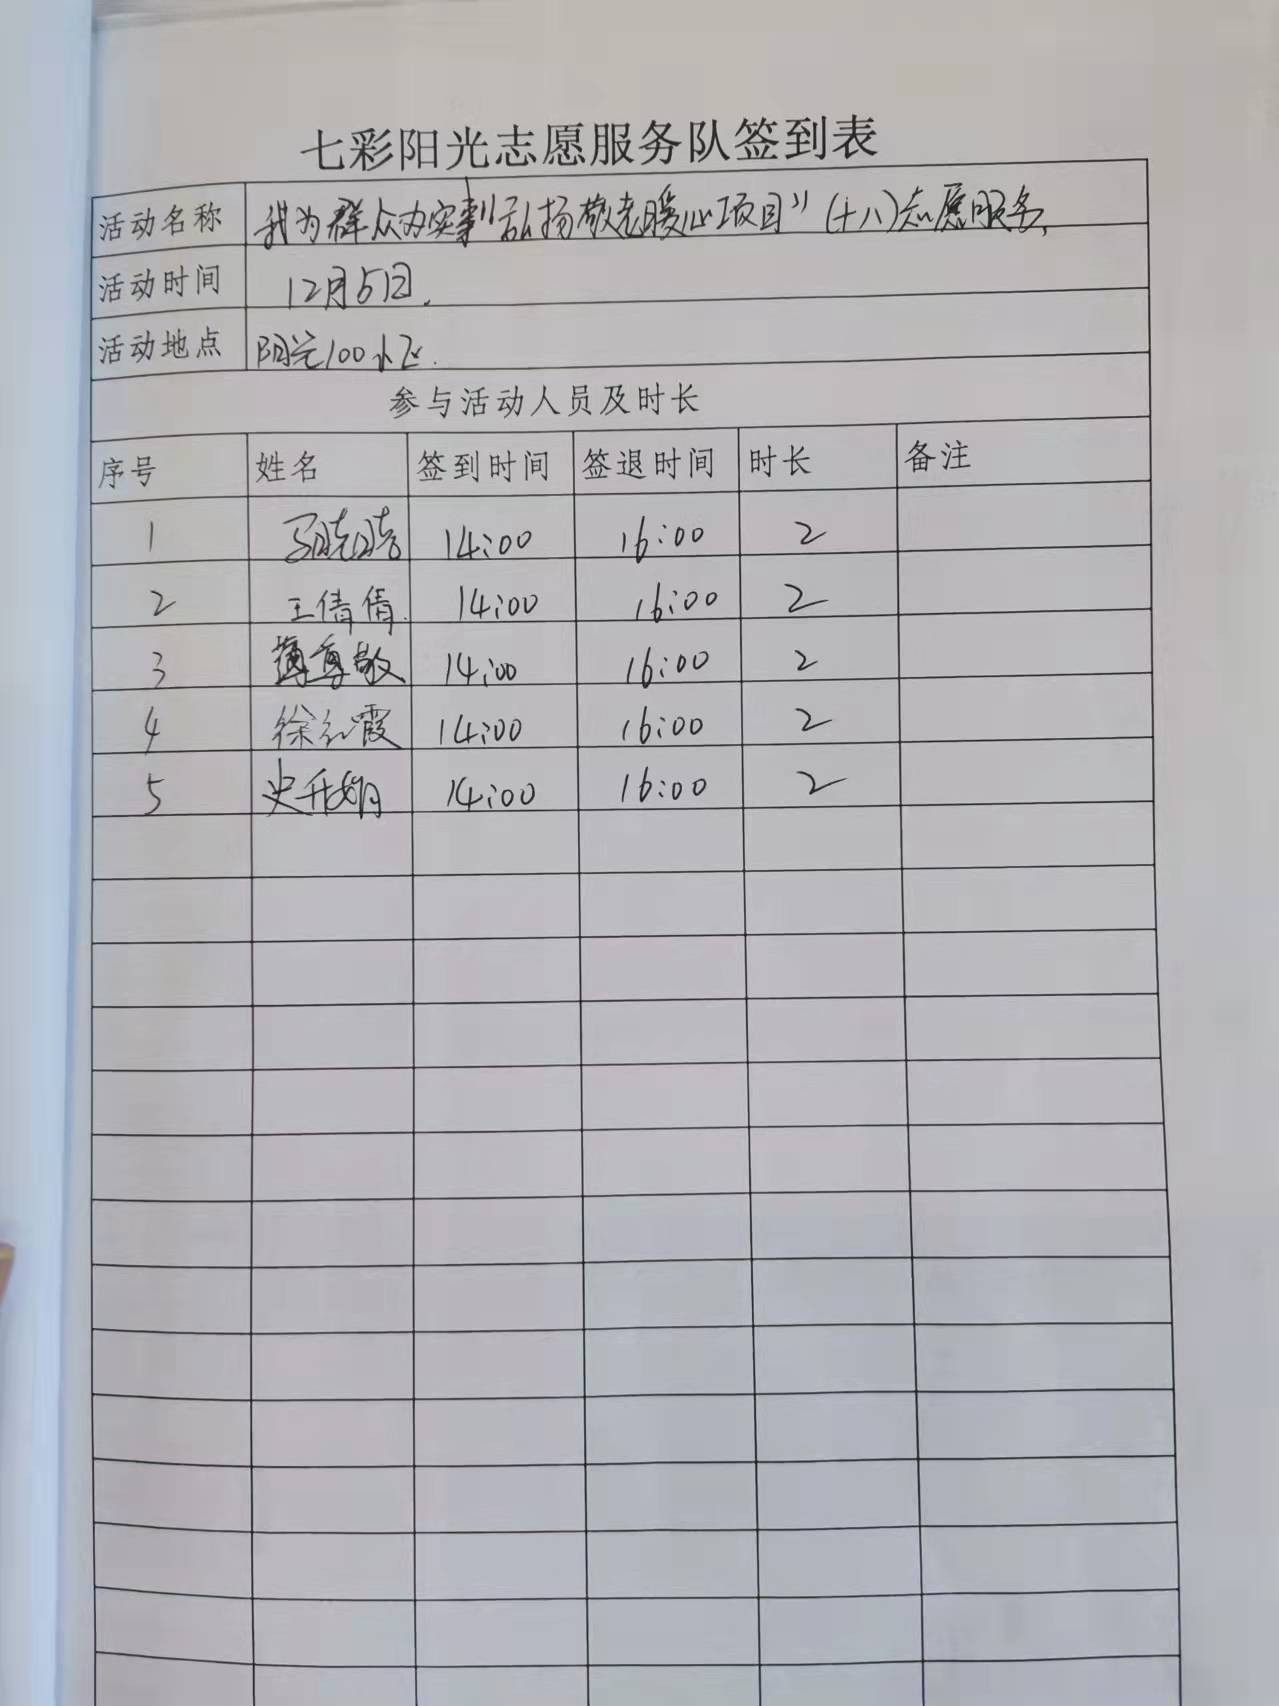 七彩阳光志愿服务队签到表
活动名称 我为群众办实事"弘扬敬老暖心项目"(十八)志愿服务.
活动时间 12月5日.
活动地点 阳光100小区.
参与活动人员及时长
序号 姓名 签到时间 签退时间 时长 备注
1 马晓晓 14:00 16:00 2
2 王倩倩. 14:00 16:00 2
3 尊敬 14:00 16:00 2
4 徐红霞 14:00 16:00 2
5 史 14:00 16:00 2